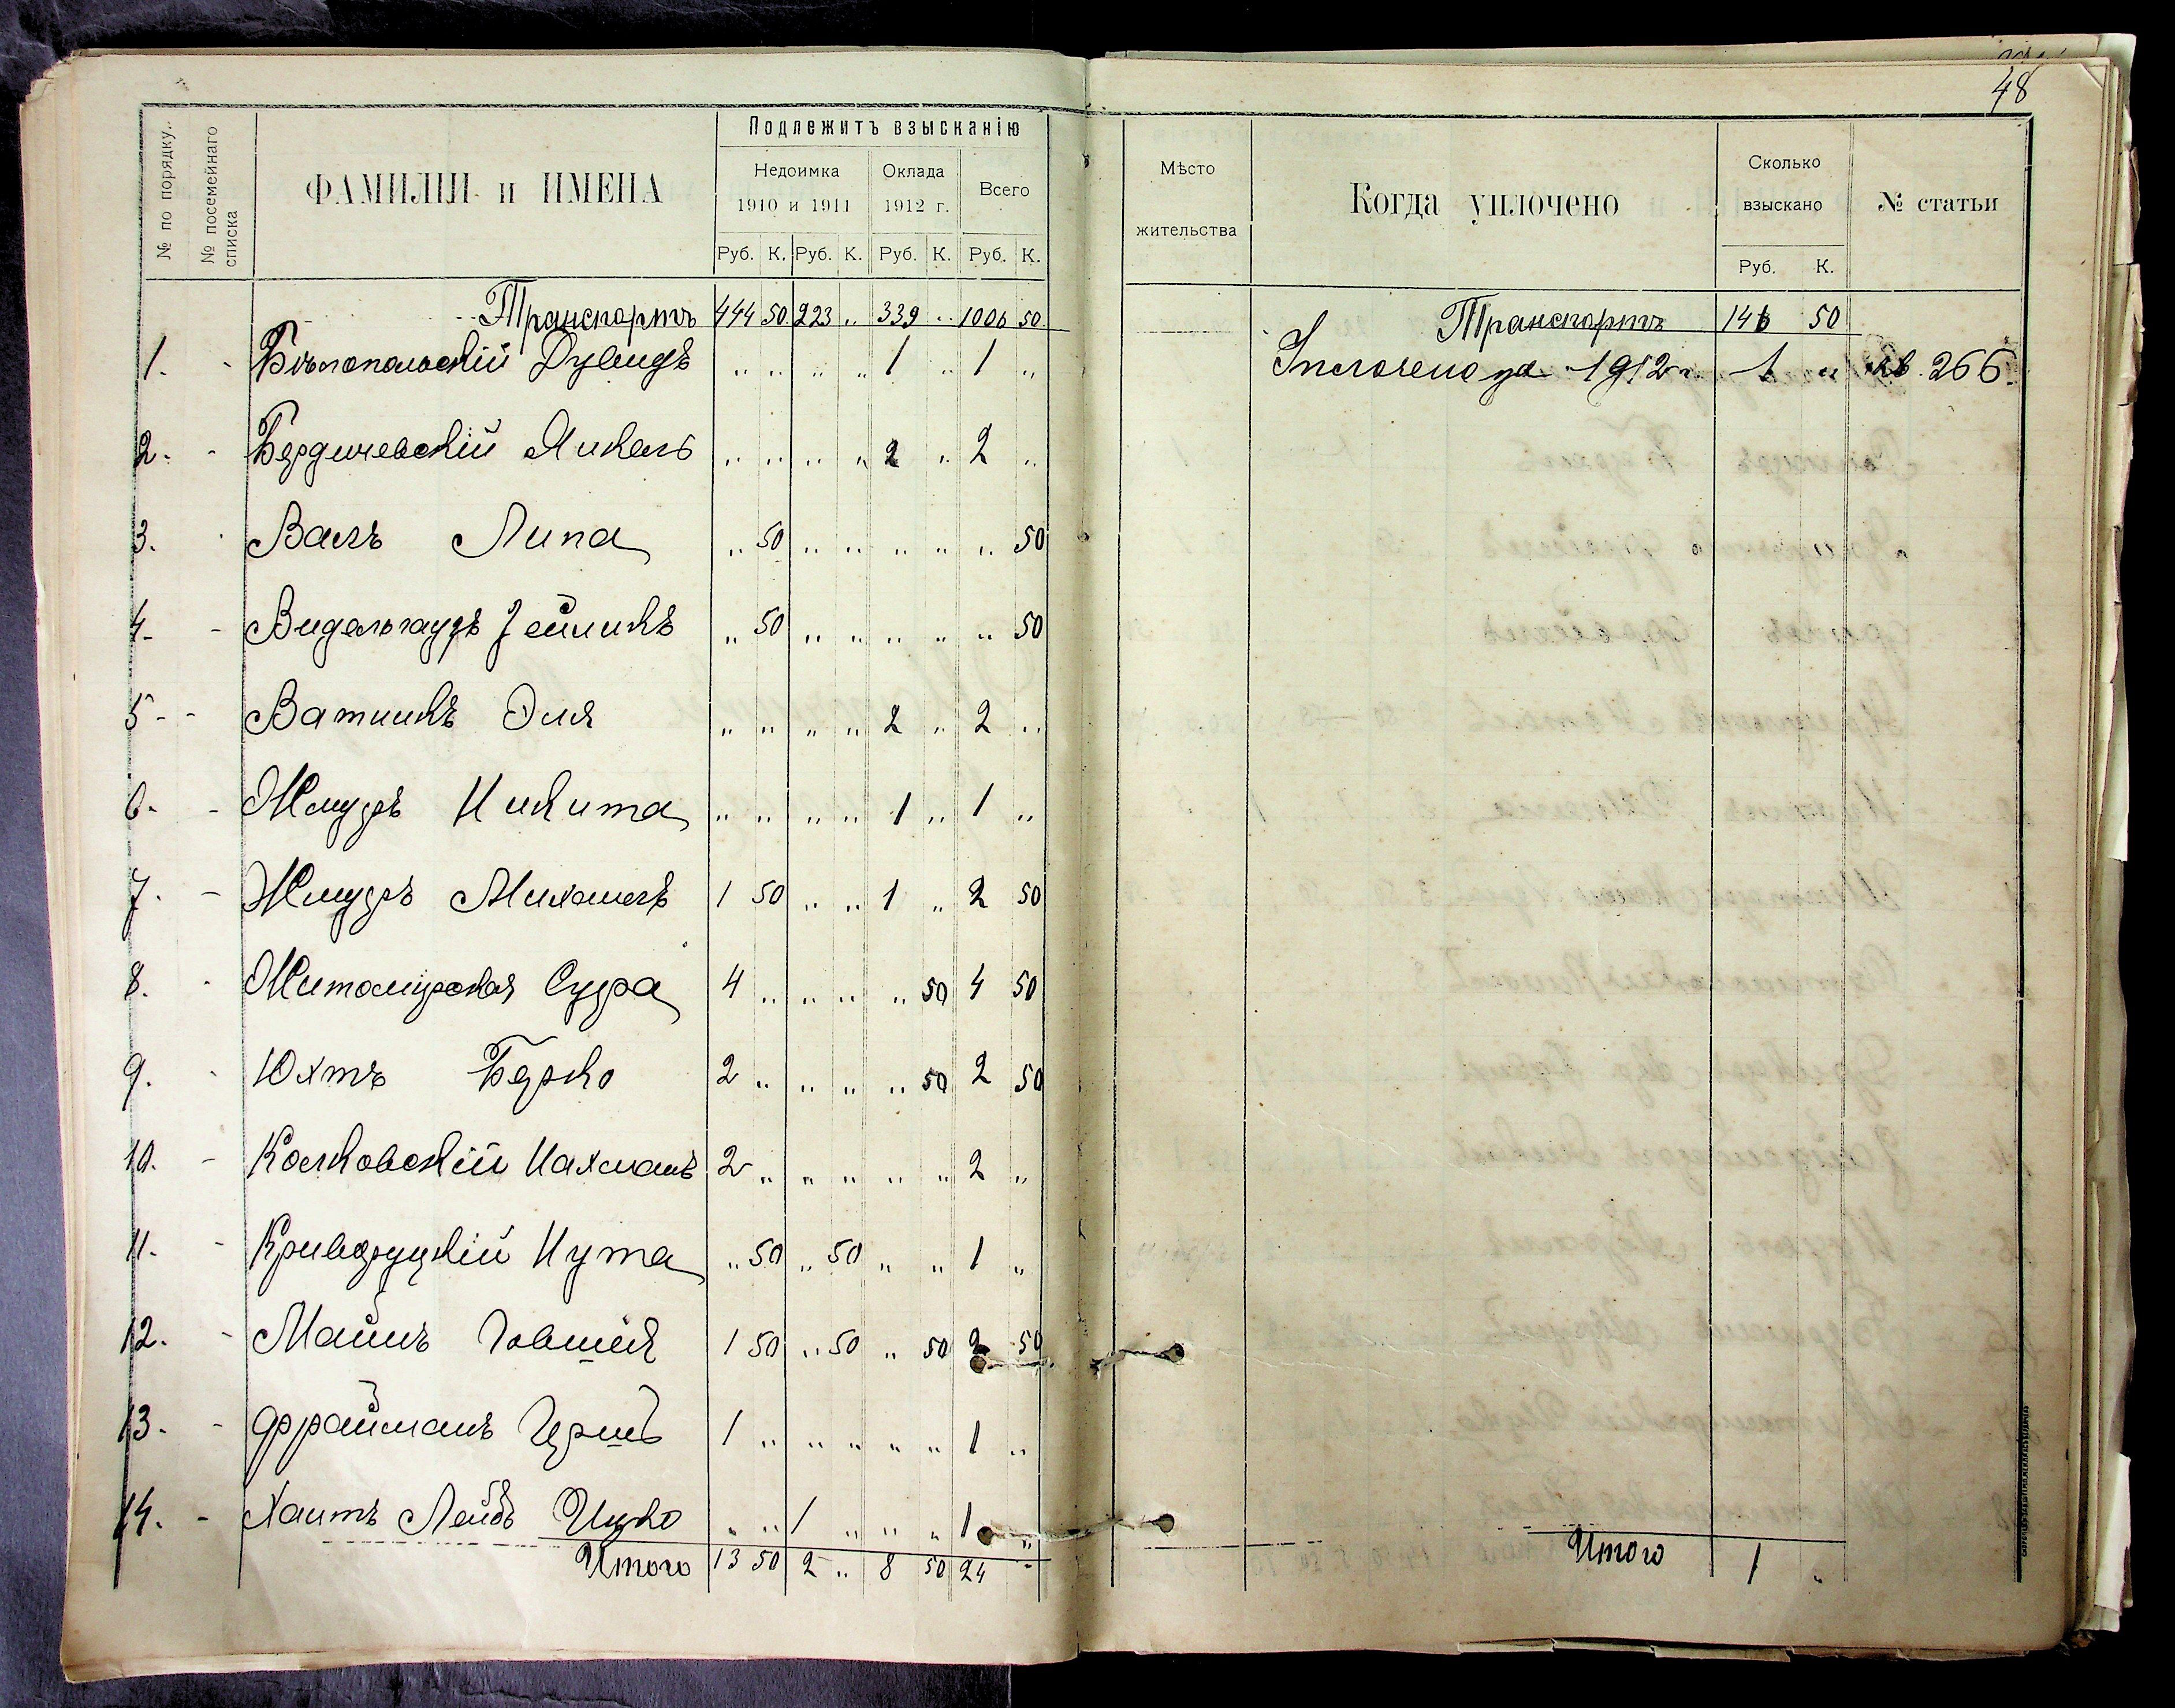 48
№ по порядку.
№ посемейнаго списка
ФАМИЛІИ и ИМЕНА
Подлежитъ взысканію
Недоимка
1910 и 1911
Оклада
1912 г.
Всего
Руб. К. Руб. К. Руб. К. Руб. К.
Транспортъ 444 50 223 „ 339 „ 1006 50
1. - Бѣлопольскій Дувидъ „ „ „ „ 1 „ 1 „
2. - Бердичевскій Янкель „ „ „ „ 2 „ 2 „
3. - Валъ Липа „ 50 „ „ „ „ „ 50
4. - Видельгаузъ Зейликъ „ 50 „ „ „ „ „ 50
5 - - Ватникъ Эля „ „ „ „ 2 „ 2 „
6. - Жмудъ Никита „ „ „ „ 1 „ 1 „
7. - Жмудъ Михаилъ 1 50 „ „ 1 „ 2 50
8. - Житомирская Сура 4 „ „ „ „ 50 4 50
9. - Юхтъ Берко 2 „ „ „ „ 50 2 50
10. - Колковскій Нахманъ 2 „ „ „ „ „ 2 „
11. - Криворуцкій Нута „ 50 „ 50 „ „ 1 „
12. - Маинъ Говшія 1 50 „ 50 „ 50 2 50
13. - Фрайманъ Гершъ 1 „ „ „ „ „ 1 „
14. - Хаитъ Лейбъ Ицко „ „ 1 „ „ „ 1 „
Итого 13 50 2 „ 8 50 24 -
Мѣсто
жительства
Когда уплочено
Сколько
взыскано
Руб. К.
№ статьи
Транспортъ 146 50
Уплочено за 1912 г. 1 „ кв. 266.
Итого 1 „